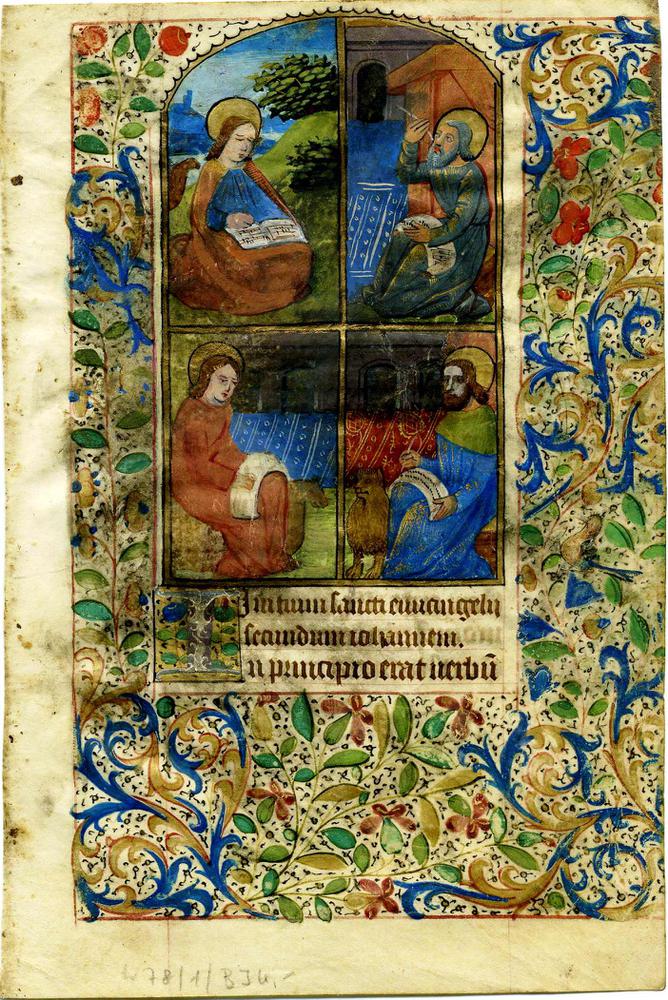 Initium sancti euuangelii
secundum iohannem.
In principio erat uerbū